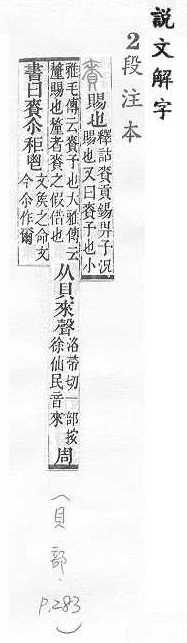 說文解字
2 段注本
賚 賜也 釋詁賚貢錫畀予況
賜也又曰賚予也小
雅毛傳云賚予也大雅傳云
釐賜也釐者賚之假借也
从貝來聲 洛帶切一部按
徐仙民音來
周
書曰賚尒秬鬯 文矦之命文
今尒作爾
(貝部. p.283)